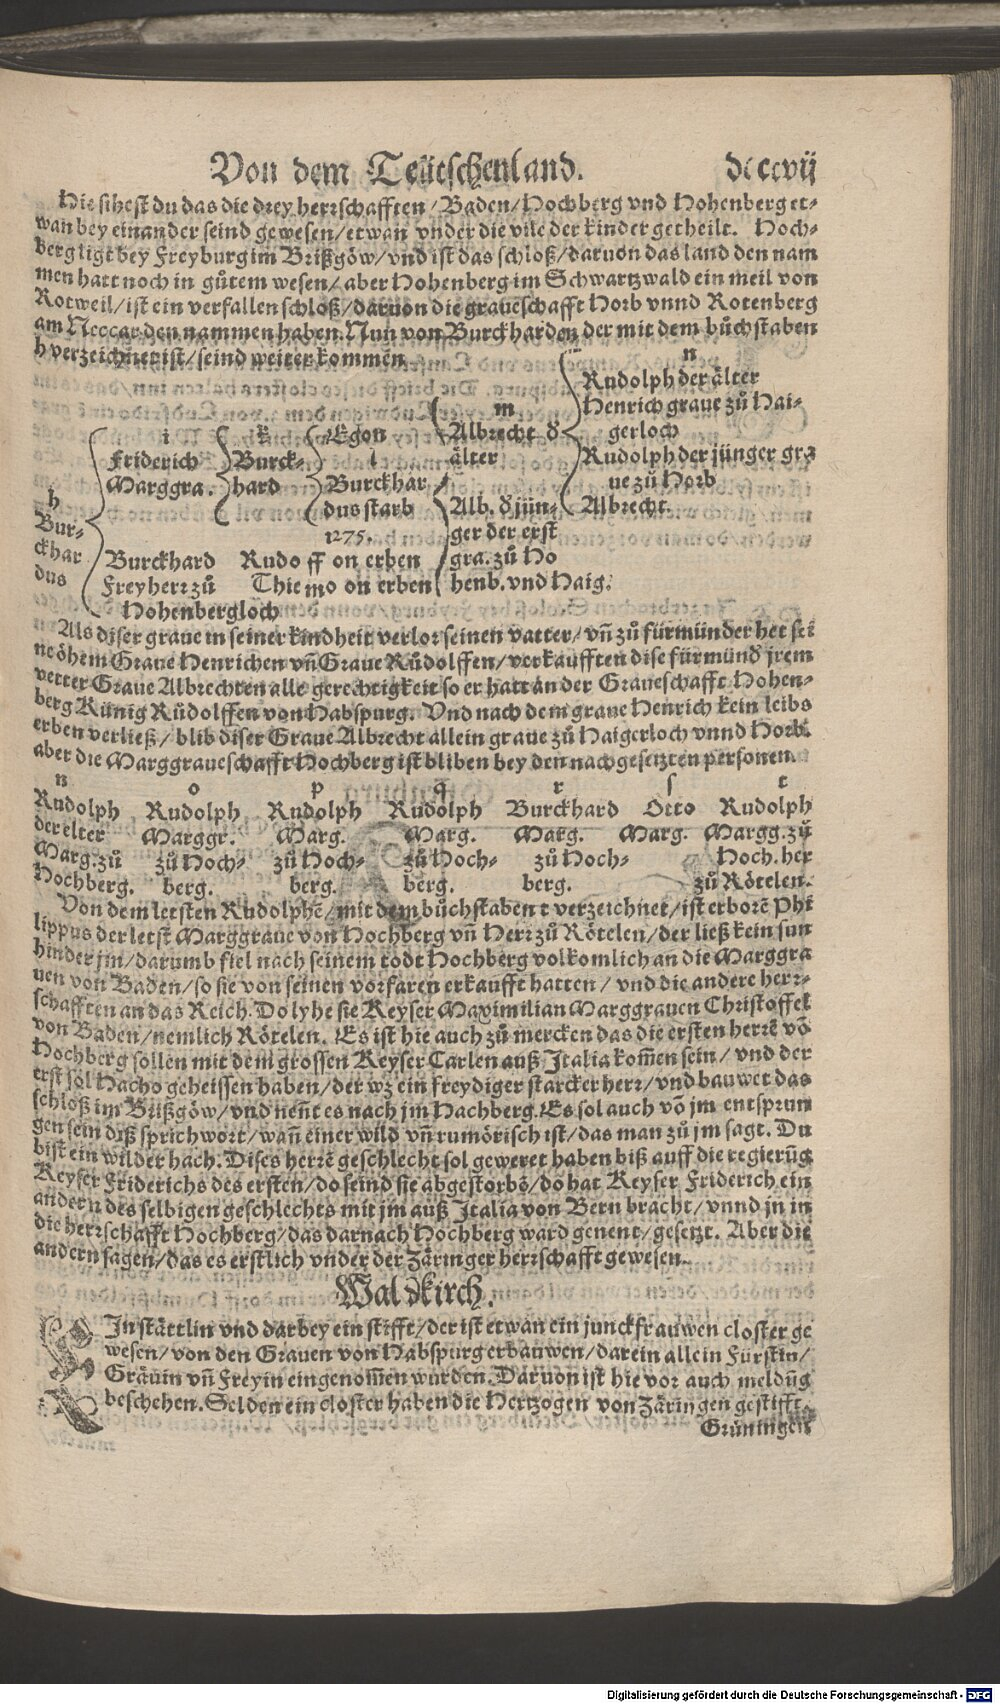 Von dem Teütschenland. dccccvij
Hie sihest du das die drey herrschafften / Baden / Hochberg vnd Hohenberg et-
wan bey einander seind gewesen / etwan vnder die vile der kinder getheilt. Hoch-
berg ligt bey Freyburg im Brißgöw / vnd ist das schloß / daruon das land den nam
men hatt noch in gůtem wesen / aber Hohenberg im Schwartzwald ein meil von
Rotweil / ist ein verfallen schloß / daruon die graueschafft Horb vnnd Rotenberg
am Necccar den nammen haben. Nun von Burckharden der mit dem bůchstaben
h verzeichnet ist / seind weiter kommen
n
Rudolph der älter
Henrich graue zů Hai-
gerloch
Rudolph der jünger gra
ue zů Horb
Albrecht.
m
Albrecht d̕
älter
Alb. d̕ jün-
ger der erst
gra. zů Ho
henb. vnd Haig.
Egon
l
Burckhar
dus starb
1275.
k
Burck-
hard
i
Friderich
Marggra.
h
Bur-
ckhar
dus
Burckhard Rudoff on erben
Freyherr zů Thiemo on erben
Hohenbergloch
Als diser graue in seiner kindheit verlor seinen vatter / vñ zů fürmünder het sei
ne öhem Graue Henrichen vñ Graue Růdolffen / verkaufften dise fürmünd̕ jrem
vetter Graue Albrechten alle gerechtigkeit so er hatt an der Graueschafft Hohen-
berg Künig Růdolffen von Habspurg. Vnd nach dem graue Henrich kein leibs
erben verließ / blib diser Graue Albrecht allein graue zů Haigerloch vnnd Horb.
aber die Marggraueschafft Hochberg ist bliben bey den nachgesetzten personen.
n o p q r s t
Rudolph Rudolph Rudolph Rudolph Burckhard Otto Rudolph
der elter Marggr. Marg. Marg. Marg. Marg. Margg. zů
Marg. zů zů Hoch- zů Hoch- zů Hoch- zů Hoch- Hoch. her
Hochberg. berg. berg. berg. berg. zů Rötelen.
Von dem letsten Rudolphẽ / mit dem bůchstaben t verzeichnet / ist erborẽ Phi
lippus der letst Marggraue von Hochberg vñ Herr zů Rötelen / der ließ kein sun
hinder jm / darumb fiel nach seinem todt Hochberg volkomlich an die Marggra
uen von Baden / so sie von seinen vorfaren erkaufft hatten / vnd die andere herr-
schafften an das Reich. Do lyhe sie Keyser Maximilian Marggrauen Christoffel
von Baden / nemlich Rötelen. Es ist hie auch zů mercken das die ersten herrẽ võ
Hochberg sollen mit dem grossen Keyser Carlen auß Italia kom̃en sein / vnd der
erst sol Hacho geheissen haben / der wz ein freydiger starcker herr / vnd bauwet das
schloß im Brißgöw / vnd neñt es nach jm Hachberg. Es sol auch võ jm entsprun
gen sein diß sprichwort / wañ einer wild vñ rumörisch ist / das man zů jm sagt. Du
bist ein wilder hach. Dises herrẽ geschlecht sol geweret haben biß auff die regierũg
Keyser Friderichs des ersten / do seind sie abgestorbẽ / do hat Keyser Friderich ein
andern des selbigen geschlechts mit jm auß Italia von Bern bracht / vnnd jn in
die herrschafft Hochberg / das darnach Hochberg ward genent / gesetzt. Aber die
andern sagen / das es erstlich vnder der Zäringer herrschafft gewesen.
Waldkirch.
EIn stättlin vnd darbey ein stifft / der ist etwan ein junckfrauwen closter ge
wesen / von den Grauen von Habspurg erbauwen / darein allein Fürstin /
Gräuin vñ Freyin eingenom̃en wurden. Daruon ist hie vor auch meldũg
beschehen. Selden ein closter haben die Hertzogen von Zäringen gestifft.
Grüningen
Digitalisierung gefördert durch die Deutsche Forschungsgemeinschaft - DFG